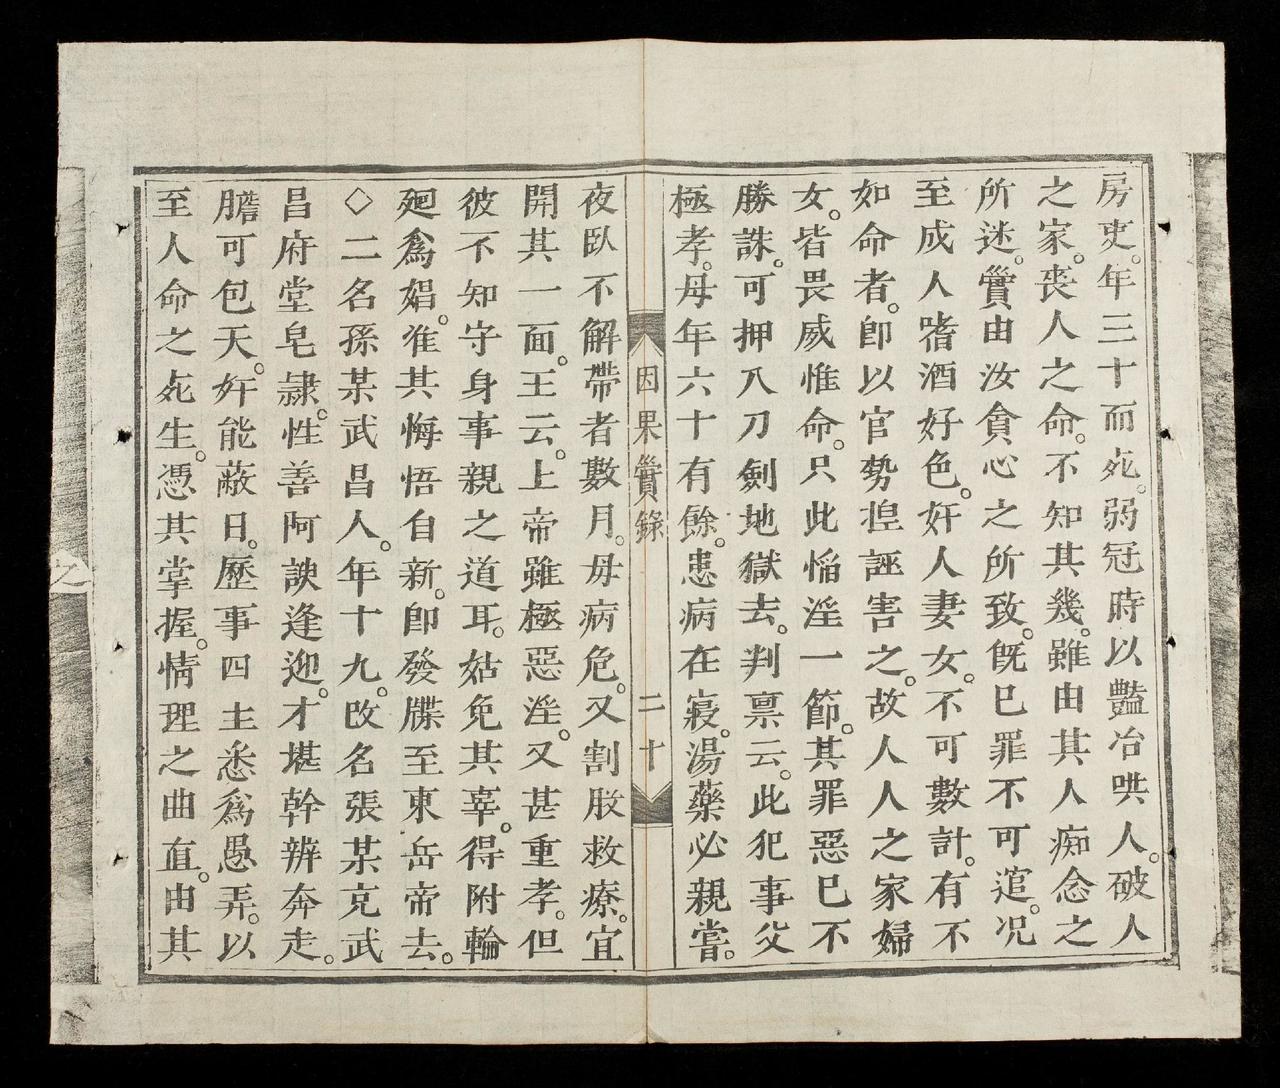 房吏。年三十而死。弱冠時以豔冶哄人。破人
之家。喪人之命。不知其幾。雖由其人痴念之
所迷。實由汝貪心之所致。旣已罪不可逭。况
至成人嗜酒好色。奸人妻女。不可數計。有不
如命者。卽以官勢揑誣害之。故人人之家婦
女。皆畏威惟命。只此惱淫一節。其罪惡已不
勝誅。可押入刀劍地獄去。判禀云。此犯事父
極孝。母年六十有餘。患病在寢。湯藥必親嘗。
因果實錄
二十
夜臥不解帶者數月。母病危。又割股救療。宜
開其一面。王云。上帝雖極惡淫。又甚重孝。但
彼不知守身事親之道耳。姑免其辜。得附輪
廻爲娼。准其悔悟自新。卽發牒至東岳帝去。
◇二名孫某武昌人。年十九。改名張某克武
昌府堂皂隷。性善阿諛逢迎。才堪幹辨奔走。
膽可包天。奸能蔽日。歷事四主悉爲愚弄。以
至人命之死生。憑其掌握。情理之曲直。由其